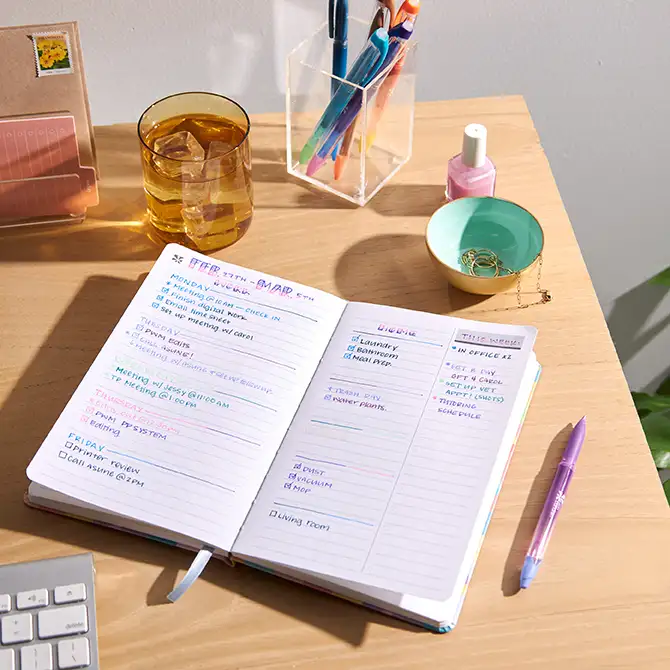 FEB 27TH - MAR 5TH
MONDAY
* Meeting @ 10AM - CHECK IN
Finish digital work
Email time sheet
Set up meeting w/ Carol
TUESDAY
PWM Edits
Meeting w/ Jessy @ 11:00AM
TP Meeting @ 1:00PM
THURSDAY
PWM PP SYSTEM
Editing
FRIDAY
Printer review
Call Asune @ 2PM
Laundry
Bathroom
Meal Prep.
TRASH DAY
Water plants.
DUST
VACUUM
MOP
Living room
TIME WEEK:
* IN OFFICE x2
* SET A DAY
OFT & CAROL
* SET UP VET
APPT! (SHOTS)
* TUTORING
SCHEDULE